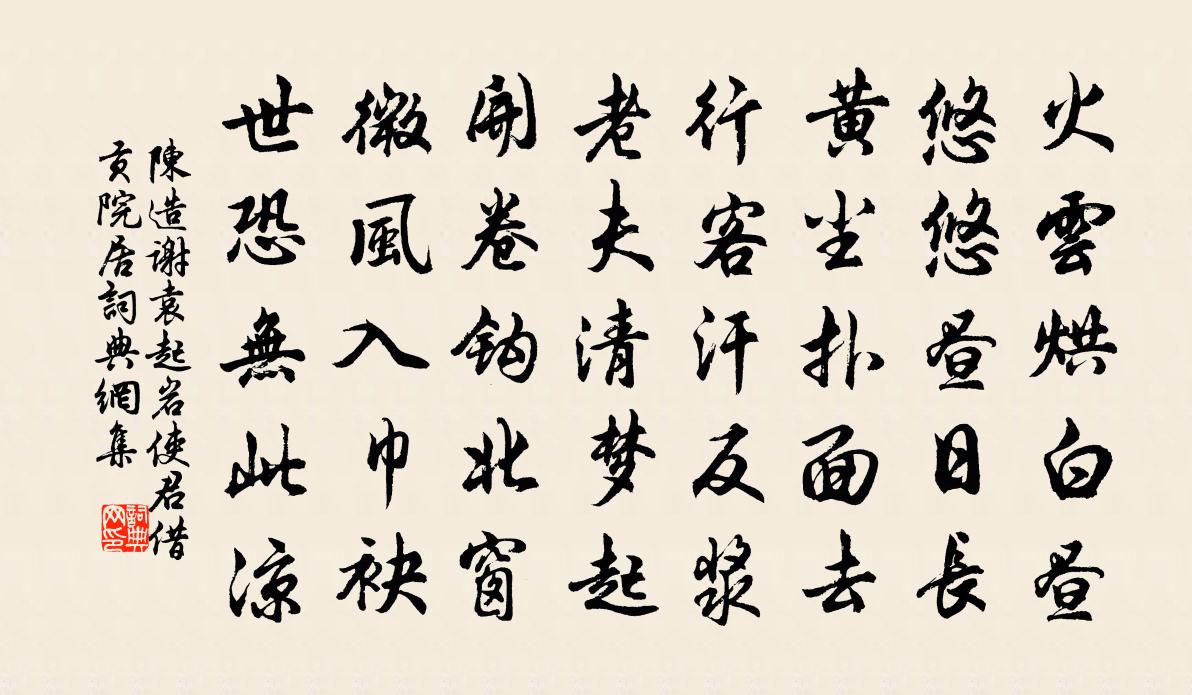 火雲烘白昼
悠悠昼日長
黄尘扑面去
行客汗反漿
老夫清梦起
開卷鈎北窗
微風入巾袂
世恐無此涼
陳造謝袁起岩使君借
贡院居詞典網集
詞典网印